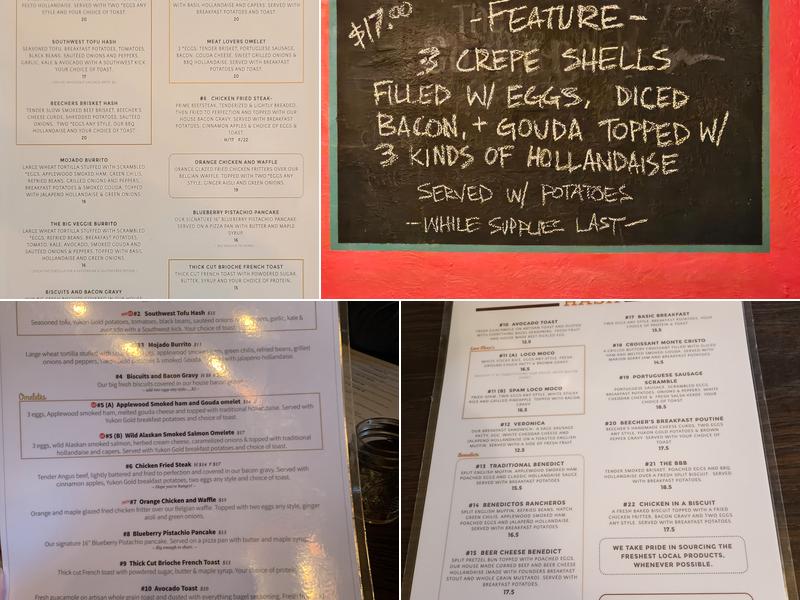 PESTO HOLLANDAISE. SERVED WITH TWO *EGGS ANY
STYLE AND YOUR CHOICE OF TOAST.
20
SOUTHWEST TOFU HASH
SEASONED TOFU, BREAKFAST POTATOES, TOMATOES,
BLACK BEANS, SAUTÉED ONIONS AND PEPPERS,
GARLIC, KALE & AVOCADO WITH A SOUTHWEST KICK
YOUR CHOICE OF TOAST.
17
BEECHERS BRISKET HASH
TENDER SLOW SMOKED BEEF BRISKET, BEECHER'S
CHEESE CURDS, SHREDDED POTATOES, SAUTÉED
ONIONS, TWO *EGGS ANY STYLE, OUR BBQ
HOLLANDAISE AND YOUR CHOICE OF TOAST
20
MOJADO BURRITO
LARGE WHEAT TORTILLA STUFFED WITH SCRAMBLED
*EGGS, APPLEWOOD SMOKED HAM, GREEN CHILIS,
REFRIED BEANS, GRILLED ONIONS AND PEPPERS,
BREAKFAST POTATOES & SMOKED GOUDA, TOPPED
WITH JALAPENO HOLLANDAISE & GREEN ONIONS.
18
THE BIG VEGGIE BURRITO
LARGE WHEAT TORTILLA STUFFED WITH SCRAMBLED
*EGGS, REFRIED BEANS, BREAKFAST POTATOES,
TOMATO, KALE, AVOCADO, SMOKED GOUDA AND
SAUTÉED ONIONS & PEPPERS, TOPPED WITH BASIL
HOLLANDAISE AND GREEN ONIONS.
16
BISCUITS AND BACON GRAVY
WITH BASIL HOLLANDAISE AND CAPERS. SERVED WITH
BREAKFAST POTATOES AND TOAST.
20
MEAT LOVERS OMELET
3 *EGGS, TENDER BRISKET, PORTUGUESE SAUSAGE,
BACON, GOUDA CHEESE, SWEET GRILLED ONIONS &
BBQ HOLLANDAISE. SERVED WITH BREAKFAST
POTATOES AND TOAST.
20
#6 CHICKEN FRIED STEAK-
PRIME BEEFSTEAK, TENDERIZED & LIGHTLY BREADED,
THEN FRIED TO PERFECTION AND TOPPED WITH OUR
HOUSE BACON GRAVY. SERVED WITH BREAKFAST
POTATOES, CINNAMON APPLES & CHOICE OF EGGS &
TOAST.
H/17 F/22
ORANGE CHICKEN AND WAFFLE
ORANGE GLAZED FRIED CHICKEN FRITTERS OVER OUR
BELGIAN WAFFLE. TOPPED WITH TWO *EGGS ANY
STYLE, GINGER AIOLI AND GREEN ONIONS.
19
BLUEBERRY PISTACHIO PANCAKE
OUR SIGNATURE 16" BLUEBERRY PISTACHIO PANCAKE.
SERVED ON A PIZZA PAN WITH BUTTER AND MAPLE
SYRUP.
16
THICK CUT BRIOCHE FRENCH TOAST
THICK CUT FRENCH TOAST WITH POWDERED SUGAR,
BUTTER, SYRUP AND YOUR CHOICE OF PROTEIN.
15
$17.00
-FEATURE-
3 CREPE SHELLS
FILLED W/ EGGS, DICED
BACON, + GOUDA TOPPED W/
3 KINDS OF HOLLANDAISE
SERVED W/ POTATOES
-WHILE SUPPLIES LAST-
#2 Southwest Tofu Hash
Seasoned tofu, Yukon Gold potatoes, tomatoes, black beans, sautéed onions
avocado with a Southwest kick. Your choice of toast.
Mojado Burrito $17
Large wheat tortilla stuffed
#4 Biscuits and Bacon Gravy
Our big fresh biscuits covered in our house bacon gravy
Omelets
#5 (A) Applewood Smoked ham and Gouda omelet
3 eggs, Applewood smoked ham, melted gouda cheese and topped with traditional hollandaise. Served with
Yukon Gold breakfast potatoes and choice of toast.
#5 (B) Wild Alaskan Smoked Salmon Omelete $17
3 eggs, wild Alaskan smoked salmon, herbed cream cheese, caramelized onions & topped with traditional
hollandaise and capers. Served with Yukon Gold breakfast potatoes and choice of toast.
#6 Chicken Fried Steak H $14 F $17
Tender Angus beef, lightly battered and fried to perfection and covered in our bacon gravy. Served with
cinnamon apples, Yukon Gold breakfast potatoes, two eggs any style and choice of toast.
- Hope you're hungry! -
#7 Orange Chicken and Waffle $15
Orange and maple glazed fried chicken fritter over our Belgian waffle. Topped with two eggs any style, ginger
aioli and green onions.
#8 Blueberry Pistachio Pancake $13
Our signature 16" Blueberry Pistachio pancake. Served on a pizza pan with butter and maple syrup.
- Big enough to share. -
#9 Thick Cut Brioche French Toast $13
Thick cut French toast with powdered sugar, butter & maple syrup. Your choice of protein.
#10 Avocado Toast $10
Fresh guacamole on artisan whole grain toast and dusted with everything bagel seasoning.
#10 AVOCADO TOAST
FRESH GUACAMOLE ON ARTISAN TOAST AND DUSTED
WITH EVERYTHING BAGEL SEASONING.
12.5
#11 (A) LOCO MOCO
16.5
#11 (B) SPAM LOCO MOCO
16.5
#12 VERONICA
OUR BREAKFAST SANDWICH. A SAGE SAUSAGE
PATTY, EGG, WHITE CHEDDAR CHEESE AND
JALAPENO HOLLANDAISE ON A TOASTED ENGLISH
MUFFIN. SERVED WITH A SIDE OF FRESH FRUIT.
12.5
Benedicts
#13 TRADITIONAL BENEDICT
SPLIT ENGLISH MUFFIN, APPLEWOOD SMOKED HAM,
POACHED EGGS AND CLASSIC HOLLANDAISE SAUCE.
SERVED WITH BREAKFAST POTATOES.
15.5
#14 BENEDICTOS RANCHEROS
SPLIT ENGLISH MUFFIN, REFRIED BEANS, HATCH
GREEN CHILIS, APPLEWOOD SMOKED HAM,
POACHED EGGS AND JALAPEÑO HOLLANDAISE.
SERVED WITH BREAKFAST POTATOES.
16.5
#15 BEER CHEESE BENEDICT
SPLIT PRETZEL BUN TOPPED WITH POACHED EGGS,
OUR HOUSE MADE CORNED BEEF AND BEER CHEESE
HOLLANDAISE (MADE WITH FOUNDERS BREAKFAST
STOUT AND WHOLE GRAIN MUSTARD). SERVED WITH
BREAKFAST POTATOES.
17.5
#17 BASIC BREAKFAST
TWO EGGS ANY STYLE, BREAKFAST POTATOES, YOUR
CHOICE OF PROTEIN & TOAST.
13.5
#18 CROISSANT MONTE CRISTO
A GRILLED BUTTERY CROISSANT FILLED WITH SLICED
HAM AND MELTED SMOKED GOUDA. SERVED WITH
MARION BERRY JAM AND BREAKFAST POTATOES.
14.5
#19 PORTUGUESE SAUSAGE
SCRAMBLE
PORTUGUESE SAUSAGE, SCRAMBLED EGGS,
BREAKFAST POTATOES, ONIONS & PEPPERS, WHITE
CHEDDAR CHEESE & FRESH SALSA VERDE. YOUR
CHOICE OF TOAST.
18.5
#20 BEECHER'S BREAKFAST POUTINE
BEECHER'S HANDMADE CHEESE CURDS, TWO EGGS
ANY STYLE, YUKON GOLD POTATOES & BROWN
PEPPER GRAVY. SERVED WITH YOUR CHOICE OF
TOAST.
17.5
#21 THE BBB
TENDER SMOKED BRISKET, POACHED EGGS AND BBQ
HOLLANDAISE ON A FRESH SPLIT BISCUIT. SERVED
WITH BREAKFAST POTATOES.
18.5
#22 CHICKEN IN A BISCUIT
A FRESH BAKED BISCUIT TOPPED WITH A FRIED
CHICKEN FRITTER, BACON GRAVY AND TWO EGGS
ANY STYLE. SERVED WITH BREAKFAST POTATOES.
17.5
WE TAKE PRIDE IN SOURCING THE
FRESHEST LOCAL PRODUCTS,
WHENEVER POSSIBLE.